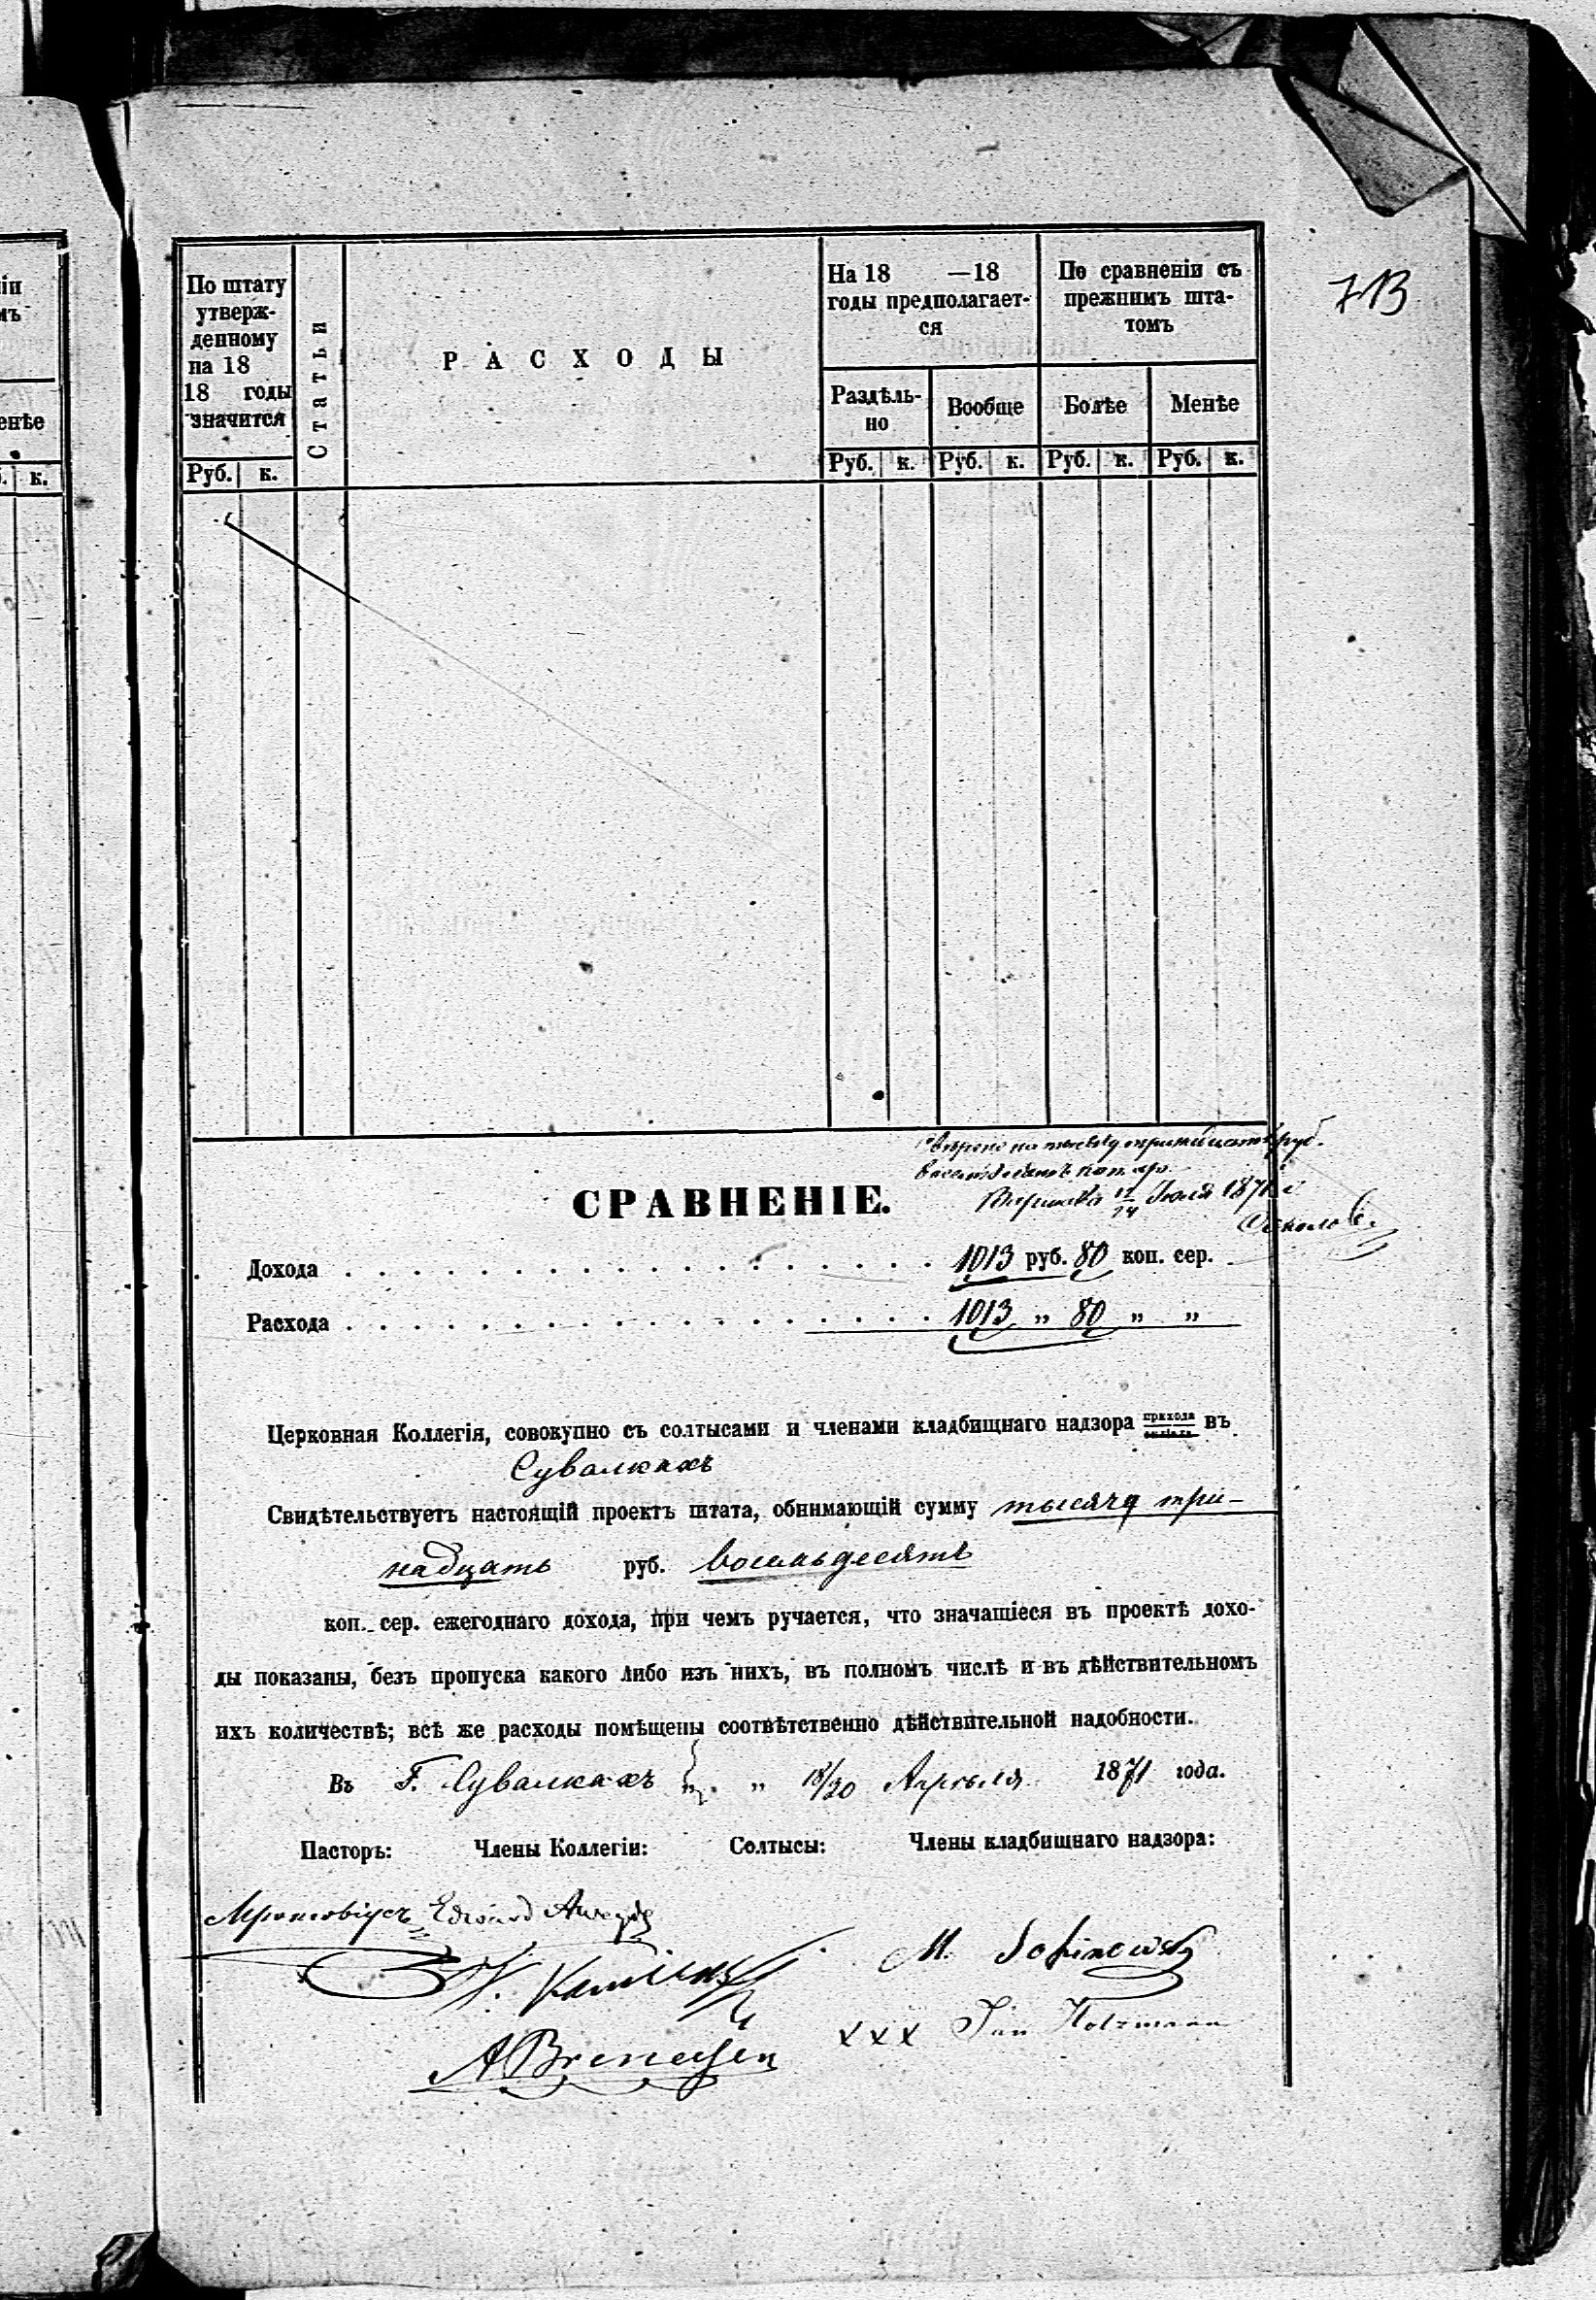 713
По штату
утверж-
денному
на 18
18 годы
значится
Статьи
РАСХОДЫ
На 18 —18
годы предполагает-
ся
По сравненіи съ
прежнимъ шта-
томъ
Раздѣль-
но
Вообще
Болѣе
Менѣе
Руб. к.
Руб. к. Руб. к. Руб. к. Руб. к.
енѣе
к.
руб.
коп.
Варшава 12/24 Іюля 1871
СРАВНЕНІЕ.
Дохода . . . . . . . . . . . . . . . . . . 1013 руб. 80 коп. сер.
Расхода . . . . . . . . . . . . . . . . . . 1013 „ 80 „ „
Церковная Коллегія, совокупно съ солтысами и членами кладбищнаго надзора прихода въ
Сувалкахъ
Свидѣтельствуетъ настоящій проектъ штата, обнимающій сумму тысячу три-
надцать руб. восемьдесятъ
коп. сер. ежегоднаго дохода, при чемъ ручается, что значащіеся въ проектѣ дохо-
ды показаны, безъ пропуска какого либо изъ нихъ, въ полномъ числѣ и въ дѣйствительномъ
ихъ количествѣ; всѣ же расходы помѣщены соотвѣтственно дѣйствительной надобности.
Въ Г. Сувалкахъ „ „ 18/30 Апрѣля 1871 года.
Пасторъ: Члены Коллегіи: Солтысы: Члены кладбищнаго надзора:
Edward
M.
A Bremersen
xxx Jan Holzmann